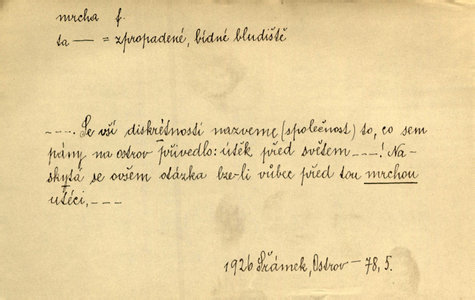 mrcha f.
ta — = zpropadené, bídné bludiště
---. Se vší diskrétností nazveme (společnost) to, co sem
pány na ostrov přivedlo: útěk před světem ---! Na-
skytá se ovšem otázka lze-li vůbec před tou mrchou
utéci, ---
1926 Šrámek, Ostrov - 78, 5.